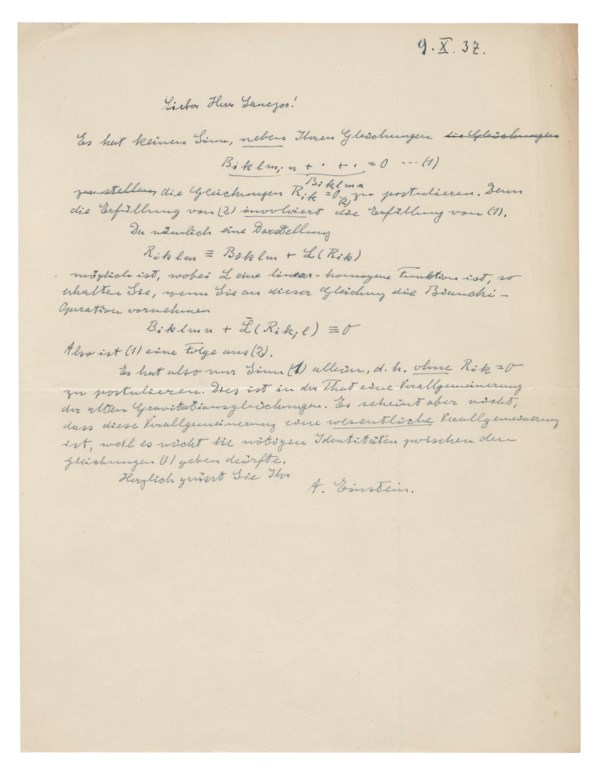 9. X. 37.
Lieber Herr Lanczos!
Es hat keinen Sinn, neben Ihren Gleichungen die Gleichungen
Biklm;n + · + · = 0 ... (1)
Biklmn
zu stellen, die Gleichungen Rik = 0 (2) zu postulieren. Denn
die Erfüllung von (2) involviert die Erfüllung von (1).
Da nämlich eine Darstellung
Riklm ≡ Biklm + L(Rik)
möglich ist, wobei L eine linear-homogene Funktion ist, so
erhalten Sie, wenn Sie an dieser Gleichung die Bianchi-
Operation vornehmen
Biklmn + L̄(Rik;l) ≡ 0
Also ist (1) eine Folge aus (2).
Es hat also nur Sinn (1) allein, d. h. ohne Rik = 0
zu postulieren. Dies ist in der That eine Verallgemeinerung
der alten Gravitationsgleichungen. Es scheint aber nicht,
dass diese Verallgemeinerung eine wesentliche Verallgemeinerung
ist, weil es nicht die nötigen Identitäten zwischen den
Gleichungen (1) geben dürfte.
Herzlich grüsst Sie Ihr
A. Einstein.